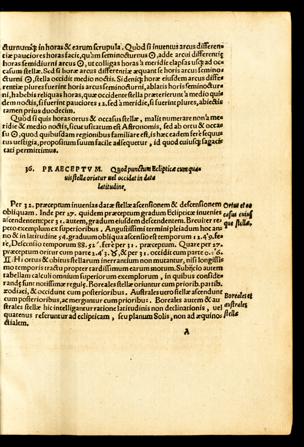 cturnumq́; in horas & earum scrupula. Quod si inuentus arcus differen
tiæ pauciores horas facit, quàm seminocturnus ☉, adde arcui differentiæ
horas semidiurni arcus ☉, ut colligas horas à meridie elapsas usq; ad oc-
casum stellæ. Sed si horæ arcus differentiæ æquant se horis arcus semino-
cturni ☉, stella occidet medio noctis. Si deniq; horæ eiusdem arcus diffe-
rentiæ plures fuerint horis arcus seminocturni, ablatis horis seminoctur-
ni, habebis reliquas horas, quæ occidente stella præterierunt à medio quie
dem noctis, si fuerint pauciores 12. sed à meridie, si fuerint plures, abiectis
tamen prius duodecim.
Quod si quis horas ortus & occasus stellæ, malit numerare non à me-
ridie & medio noctis, sicut usitatum est Astronomis, sed ab ortu & occa-
su ☉ quod quibusdam regionibus familiare est, is hæc eadem ferè sequu-
tus uestigia, propositum suum facile adsequetur, id quod cuiusq́; sagaci-
tati permittimus.
36. PRAECEPTVM. Quod punctum Eclipticæ cum qua-
uis stella oriatur uel occidat in data
latitudine.
Per 32. præceptum inuenias datæ stellæ ascensionem & descensionem
obliquam. Inde per 27. quidem præceptum gradum Eclipticæ inuenies
ascendentem: per 31. autem, gradum eiusdem descendentem. Breuiter re-
peto exemplum ex superioribus. Angustissimi termini pleiadum hoc an-
no & in latitudine 54. graduum obliqua ascensio est temporum 12. 40. fe-
re, Descensio temporum 88. 52.
præceptum oritur cum parte
II. Hi ortus & obitus stellarum inerrantium non mutantur, nisi longissi-
mo temporis tractu propter tardissimum earum motum. Subijcio autem
tabellam calculi omnium superiorum exemplorum, in quibus conside-
randę sunt notissimæ regulę. Boreales stellæ oriuntur cum priorib. partib.
zodiaci, & occidunt cum posterioribus. Australes uero stellæ ascendunt
cum posterioribus, ac merguntur cum prioribus. Boreales autem & au-
strales stellas hic intelligantur ratione latitudinis non declinationis, uel
quatenus referuntur ad eclipticam, seu planum Solis, non ad æquino-
ctialem.
Ortus et oc
casus cuius
que stellæ.
Boreales et
australes
stellæ
A